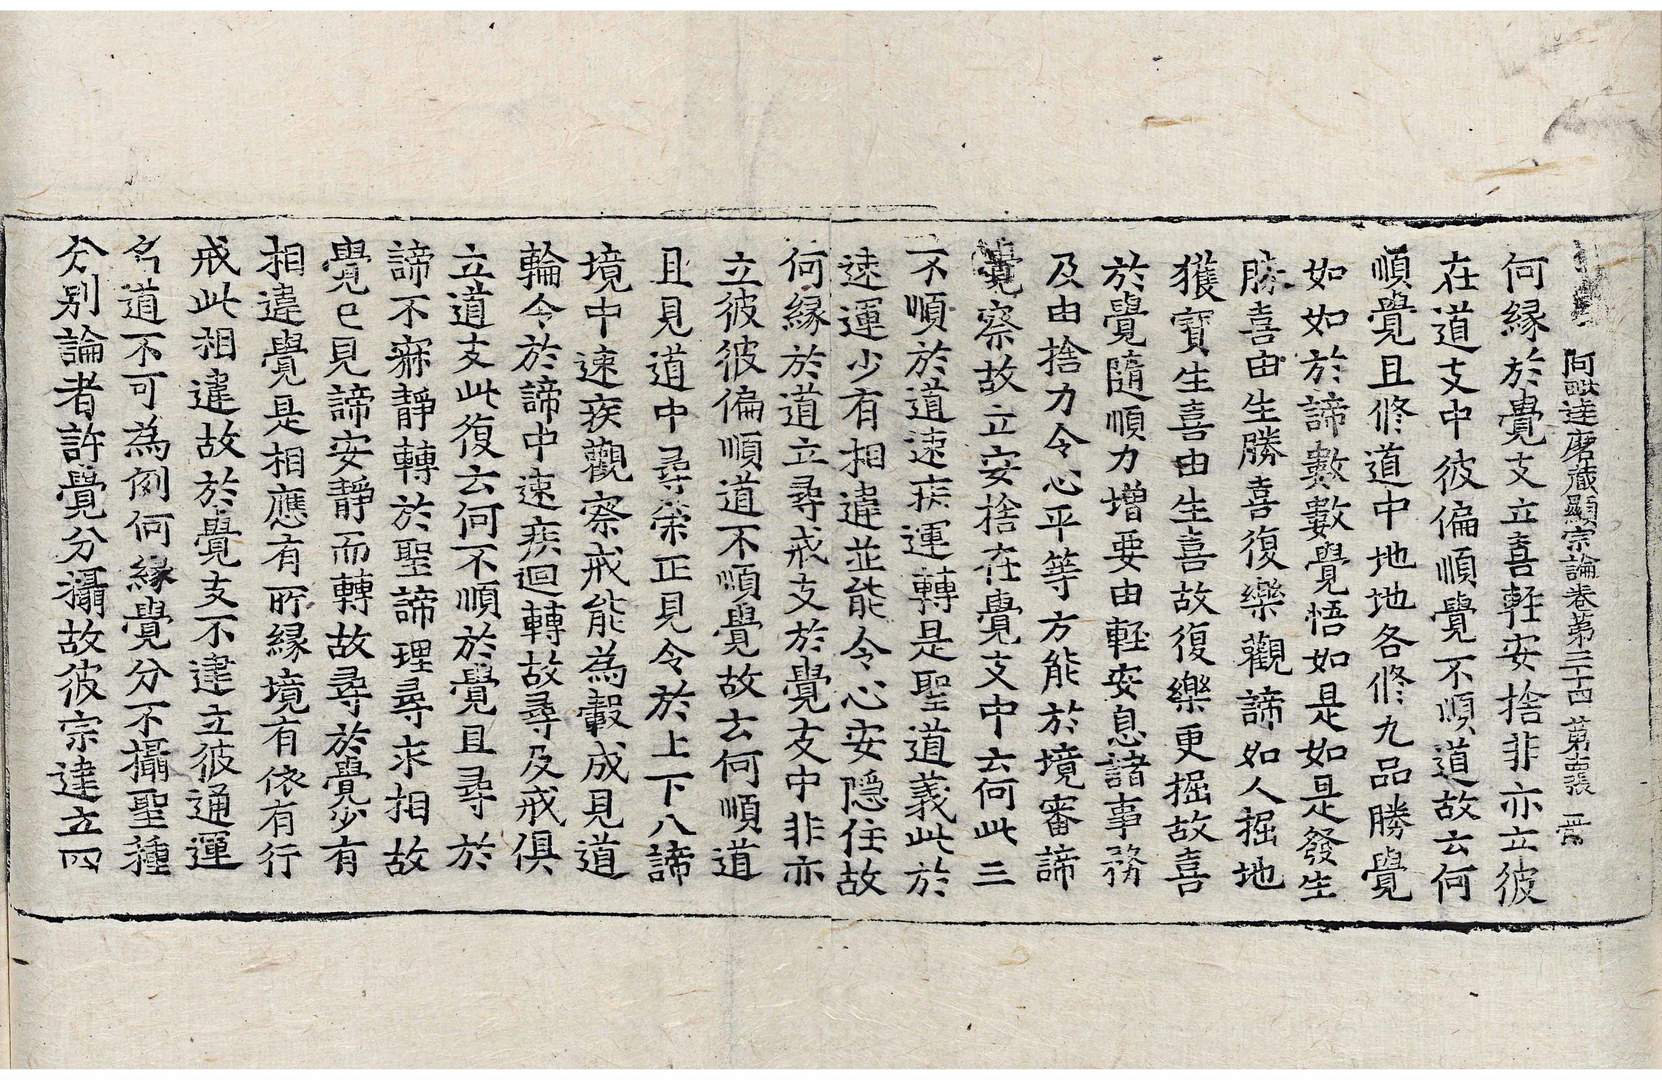 阿毗達磨藏顯宗論卷第三十四 第十四張 營
何緣於覺支立喜輕安捨非亦立彼
在道支中彼偏順覺不順道故云何
順覺且修道中地地各修九品勝覺
如如於諦數數覺悟如是如是發生
勝喜由生勝喜復樂觀諦如人掘地
獲寶生喜由生喜故復樂更掘故喜
於覺隨順力增要由輕安息諸事務
及由捨力令心平等方能於境審諦
覺察故立安捨在覺支中云何此三
不順於道速疾運轉是聖道義此於
速運少有相違並能令心安隱住故
何緣於道立尋戒支於覺支中非亦
立彼彼偏順道不順覺故云何順道
且見道中尋策正見令於上下八諦
境中速疾觀察戒能為轂成見道
輪令於諦中速疾迴轉故尋及戒俱
立道支此復云何不順於覺且尋於
諦不寂靜轉於聖諦理尋求相故
覺已見諦安靜而轉故尋於覺少有
相違覺是相應有所緣境有依有行
戒此相違故於覺支不建立彼通運
名道不可為例何緣覺分不攝聖種
分別論者許覺分攝故彼宗建立四